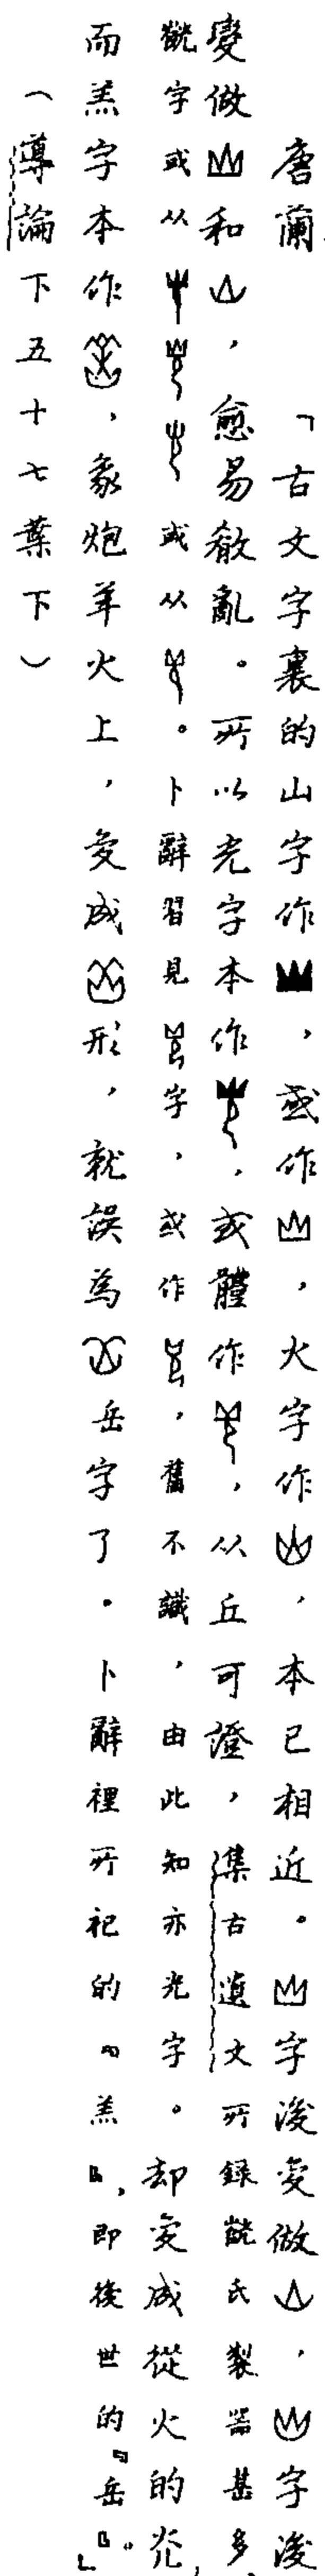 唐蘭　「古文字裏的山字作，或作，火字作，本已相近。字後变做，字後
變做和，愈易殽亂。所以光字本作，或體作，从丘可證，集古遺文所録氏製器甚多，
字或从或从。卜辭習見字，或作，舊不識，由此知亦光字。却变成從火的灮，
而羔字本作，象炮羊火上，变成形，就誤為岳字了。卜辭裡所祀的『羔』，即後世的『岳』。」
（導論下五十七葉下）